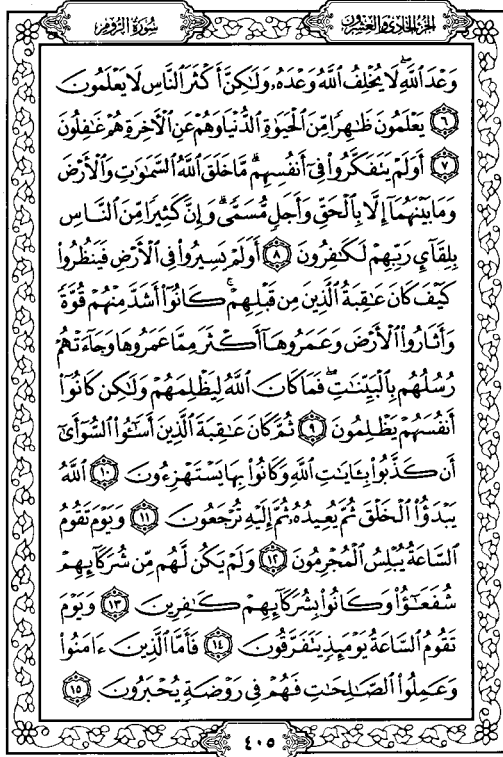 الجزء الحادي والعشرون
سورة الروم
وَعْدَ ٱللَّهِۖ لَا يُخْلِفُ ٱللَّهُ وَعْدَهُۥ وَلَٰكِنَّ أَكْثَرَ ٱلنَّاسِ لَا يَعْلَمُونَ
٦ يَعْلَمُونَ ظَٰهِرًا مِّنَ ٱلْحَيَوٰةِ ٱلدُّنْيَا وَهُمْ عَنِ ٱلْءَاخِرَةِ هُمْ غَٰفِلُونَ
٧ أَوَلَمْ يَتَفَكَّرُوا۟ فِىٓ أَنفُسِهِم ۗ مَّا خَلَقَ ٱللَّهُ ٱلسَّمَٰوَٰتِ وَٱلْأَرْضَ
وَمَا بَيْنَهُمَآ إِلَّا بِٱلْحَقِّ وَأَجَلٍ مُّسَمًّى ۗ وَإِنَّ كَثِيرًا مِّنَ ٱلنَّاسِ
بِلِقَآئِ رَبِّهِمْ لَكَٰفِرُونَ ٨ أَوَلَمْ يَسِيرُوا۟ فِى ٱلْأَرْضِ فَيَنظُرُوا۟
كَيْفَ كَانَ عَٰقِبَةُ ٱلَّذِينَ مِن قَبْلِهِمْ ۚ كَانُوٓا۟ أَشَدَّ مِنْهُمْ قُوَّةً
وَأَثَارُوا۟ ٱلْأَرْضَ وَعَمَرُوهَآ أَكْثَرَ مِمَّا عَمَرُوهَا وَجَآءَتْهُمْ
رُسُلُهُم بِٱلْبَيِّنَٰتِ ۖ فَمَا كَانَ ٱللَّهُ لِيَظْلِمَهُمْ وَلَٰكِن كَانُوٓا۟
أَنفُسَهُمْ يَظْلِمُونَ ٩ ثُمَّ كَانَ عَٰقِبَةَ ٱلَّذِينَ أَسَٰٓـُٔوا۟ ٱلسُّوٓأَىٰٓ
أَن كَذَّبُوا۟ بِـَٔايَٰتِ ٱللَّهِ وَكَانُوا۟ بِهَا يَسْتَهْزِءُونَ ١٠ ٱللَّهُ
يَبْدَؤُا۟ ٱلْخَلْقَ ثُمَّ يُعِيدُهُۥ ثُمَّ إِلَيْهِ تُرْجَعُونَ ١١ وَيَوْمَ تَقُومُ
ٱلسَّاعَةُ يُبْلِسُ ٱلْمُجْرِمُونَ ١٢ وَلَمْ يَكُن لَّهُم مِّن شُرَكَآئِهِمْ
شُفَعَٰٓؤُا۟ وَكَانُوا۟ بِشُرَكَآئِهِمْ كَٰفِرِينَ ١٣ وَيَوْمَ
تَقُومُ ٱلسَّاعَةُ يَوْمَئِذٍ يَتَفَرَّقُونَ ١٤ فَأَمَّا ٱلَّذِينَ ءَامَنُوا۟
وَعَمِلُوا۟ ٱلصَّٰلِحَٰتِ فَهُمْ فِى رَوْضَةٍ يُحْبَرُونَ ١٥
٤٠٥